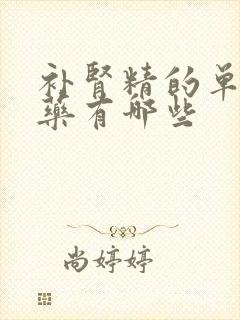 补肾精的单
药有哪些
尚婷婷